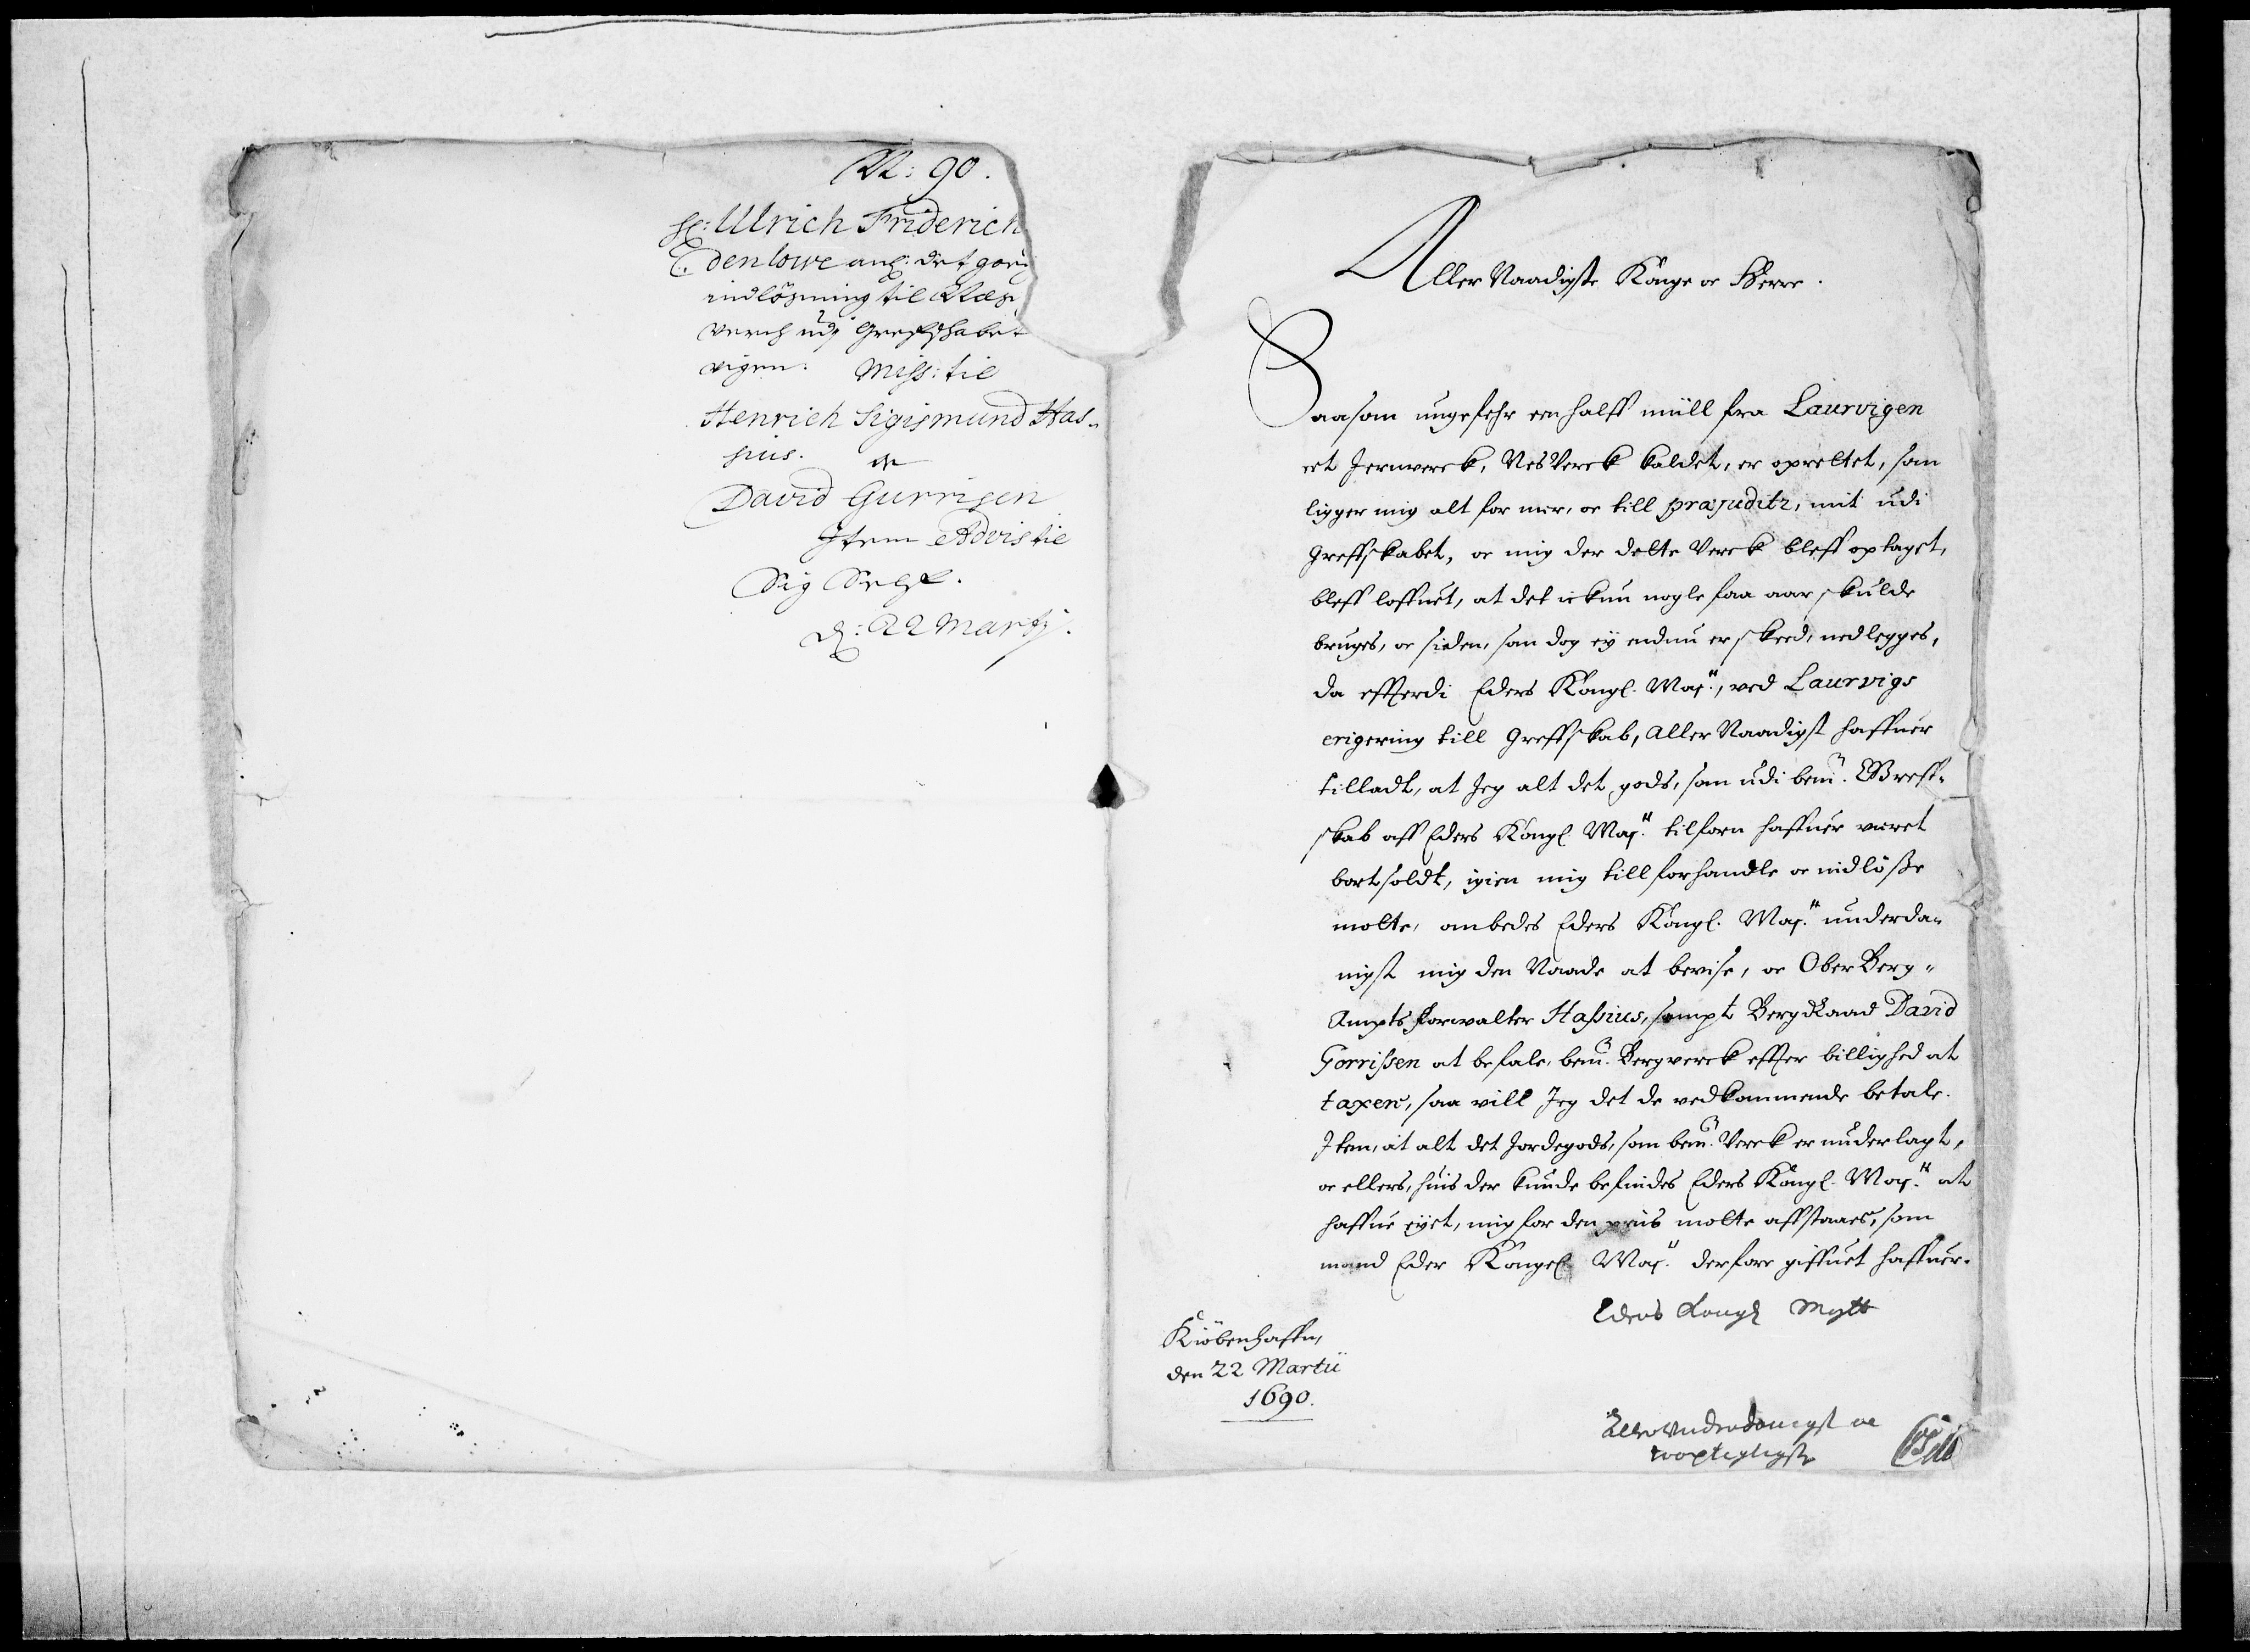 N: 90.
H: Ulrich Friderich
Gÿldenlöwe anl: det
indlösning til Næs
verch udj Grefschabet
vigen. Miss: til
Henrich Sigismund Has-
sius. oc
David Gurrisen
Item Advis til
Sig Self.
d: 22 Martj.
Aller Naadigste Konge oc Herre.
Saasom ungefehr een halff müll fra Laurvigen
eet Jernverck, NesVerck kaldet, er oprettet, som
ligger mig alt for nær, oc till præjuditz, mit udi
Greffskabet, oc mig der dette Verck bleff optaget,
bleff loffuet, at det ickun nogle faa aar skulde
bruges, oc siden, som dog ey endnu er skeed, nedlegges,
da effterdi Eders Kongl. Maj.tt, ved Laurvigs
erigering till Greffskab, Aller Naadigst haffuer
tilladt, at Jeg alt det gods, som udi bem.te Greff-
skab aff Eders Kongl. Maj.tt tilforn haffuer været
bortsoldt, igien mig till forhandle oc indlöße
motte, ombedes Eders Kongl. Maj.tt underda-
nigst mig den Naade at bevise, oc Ober Berg-
Ampts forvalter Hassius, sampt Berg Raad David
Gorrissen at befale, bem.te Bergverck effter billighed at
taxere, saa vill Jeg det de vedkommende betale.
Item, at alt det Jordegods, som bem.te Verck er underlagt,
oc ellers, huis der kunde befindes Eders Kongl. Maj.tt at
haffue eyet, mig for den priis motte affstaaes, som
mand Eder Kongel. Maj.tt derfore giffuet haffuer.
Eders Kongl Maytt
Kiöbenhaffn,
den 22 Martii
1690.
Allerunderdanigst oc